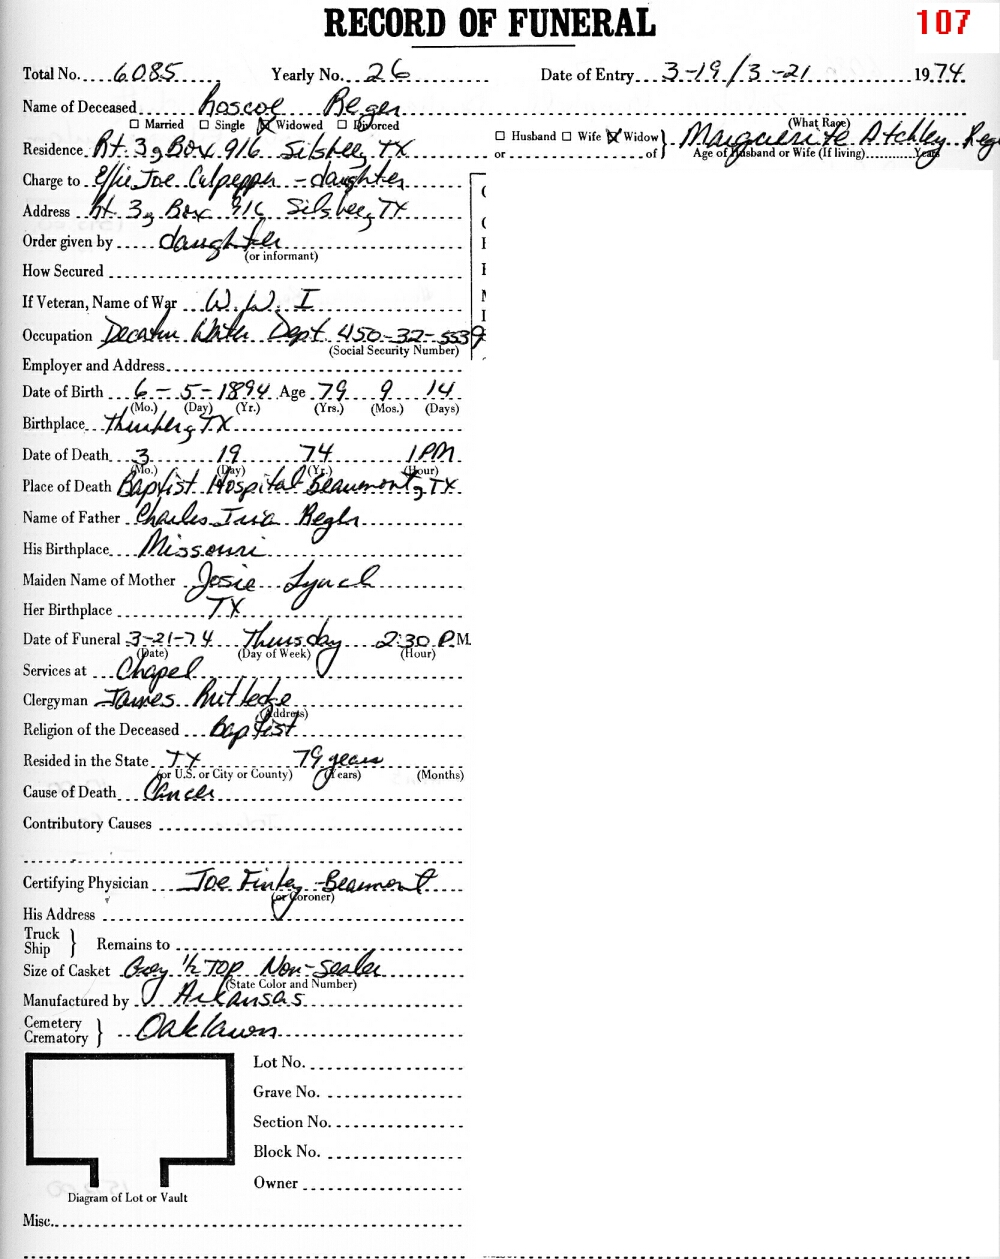 RECORD OF FUNERAL
107
Total No. 6085 Yearly No. 26 Date of Entry 3-19/3-21 1974
Name of Deceased Roscoe Reger
☐ Married ☐ Single ☒ Widowed ☐ Divorced (What Race)
☐ Husband ☐ Wife ☒ Widow } Marguerite Atchley Reg
Residence Rt. 3, Box 916 Silsbee, TX or of } Age of Husband or Wife (If living) Years
Charge to Effie Joe Culpepper - daughter
Address Rt. 3, Box 916 Silsbee, TX
Order given by daughter
(or informant)
How Secured
If Veteran, Name of War W.W. I
Occupation Decatur Water Dept. 450-32-5539
(Social Security Number)
Employer and Address
Date of Birth 6 - 5 - 1894 Age 79 9 14
(Mo.) (Day) (Yr.) (Yrs.) (Mos.) (Days)
Birthplace Thurber, TX
Date of Death 3 19 74 1 PM
(Mo.) (Day) (Yr.) (Hour)
Place of Death Baptist Hospital Beaumont, TX
Name of Father Charles Reger
His Birthplace Missouri
Maiden Name of Mother Josie Lynch
Her Birthplace TX
Date of Funeral 3-21-74 Thursday 2:30 P.M.
(Date) (Day of Week) (Hour)
Services at Chapel
Clergyman James Rutledge
(Address)
Religion of the Deceased Baptist
Resided in the State TX 79 years
(or U.S. or City or County) (Years) (Months)
Cause of Death Cancer
Contributory Causes
Certifying Physician Joe Finley - Beamont
(or Coroner)
His Address
Truck
Ship } Remains to
Size of Casket Grey 1/2 TOP Non-Sealer
(State Color and Number)
Manufactured by Arkansas
Cemetery
Crematory } Oaklawn
Lot No.
Grave No.
Section No.
Block No.
Owner
Diagram of Lot or Vault
Misc.